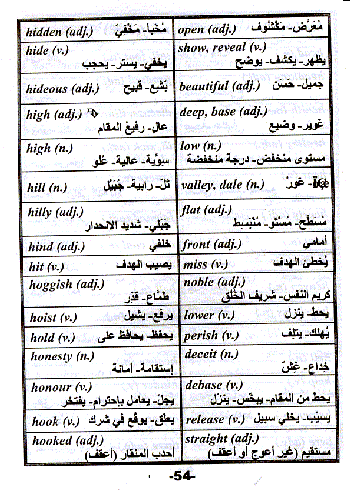 hidden (adj.) مُخبأ - مَخْفيّ
open (adj.) مُعَرَّض - مَكْشُوف
hide (v.)
يخفي - يستر - يحجب
show, reveal (v.)
يظهر - يكشف - يوضح
hideous (adj.) بَشِع - قبيح
beautiful (adj.) جميل - حَسَن
high (adj.)
عال - رفيع المقام
deep, base (adj.)
غوير - وضيع
high (n.)
سويّة - عالية - عُلُو
low (n.)
مستوى منخفض - درجة منخفضة
hill (n.) تلّ - رابية - جُبَيْل
valley, dale (n.) غَوْر
hilly (adj.)
جَبَلي - شديد الانحدار
flat (adj.)
مُسَطَّح - مُسْتَو - مُنْبَسِط
hind (adj.) خلفي
front (adj.) أمامي
hit (v.) يصيب الهدف
miss (v.) يُخطئ الهدف
hoggish (adj.)
طمّاع - قذر
noble (adj.)
كريم النفس - شريف الخُلُق
hoist (v.) يرفع - يشيل
lower (v.) يحط - ينزل
hold (v.) يحفظ - يحافظ على
perish (v.) يُهلك - يتلف
honesty (n.)
إستقامة - أمانة
deceit (n.)
خِداع - غِشّ
honour (v.)
يجلّ - يعامل بإحترام - يفتخر
debase (v.)
يحط من المقام - يبخس - ينزل
hook (v.) يعلق - يوقع في شرك
release (v.) يسيّب - يخلي سبيل
hooked (adj.)
أحدب المنقار (أعقف)
straight (adj.)
مستقيم (غير أعوج أو أعقف)
-54-